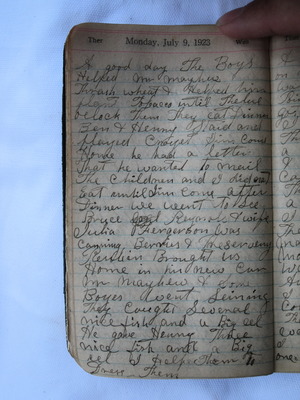 Ther Monday, July 9, 1923 Wea
A good day The Boys
Helped Mr mayhew
Thrash wheat & Helped
plant Tobacco until Twelve
oclock Then They eat Dinner
Ben & Henny Staid and
played Jim Come
Home he had a letter
That he wanted to mail
The Children and I did not
eat until Jim Come after
Dinner we went To See
Bruce Reynols & wife
Julia Fhergerson was
Canning Berries & Preserves
Brought Us
Home in his new Car
Mr Mayhew & Some
Boyes went Seining
They Caught Several
nice fish and a Big eel
He gave Henny Three
nice fish and a Big
eel I helped Them To
Dress Them